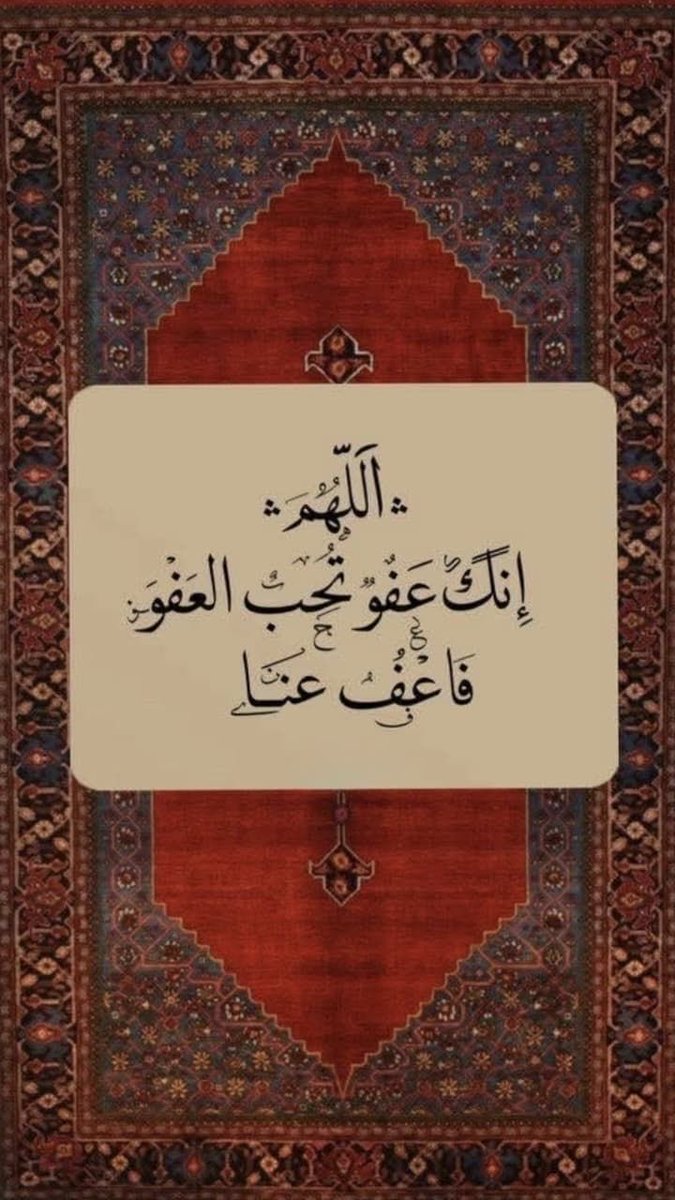 اَللّٰهُمَ
إِنَكَ عَفُوٌ تُحِبُ العَفْوَ
فَاعْفُ عَنَا